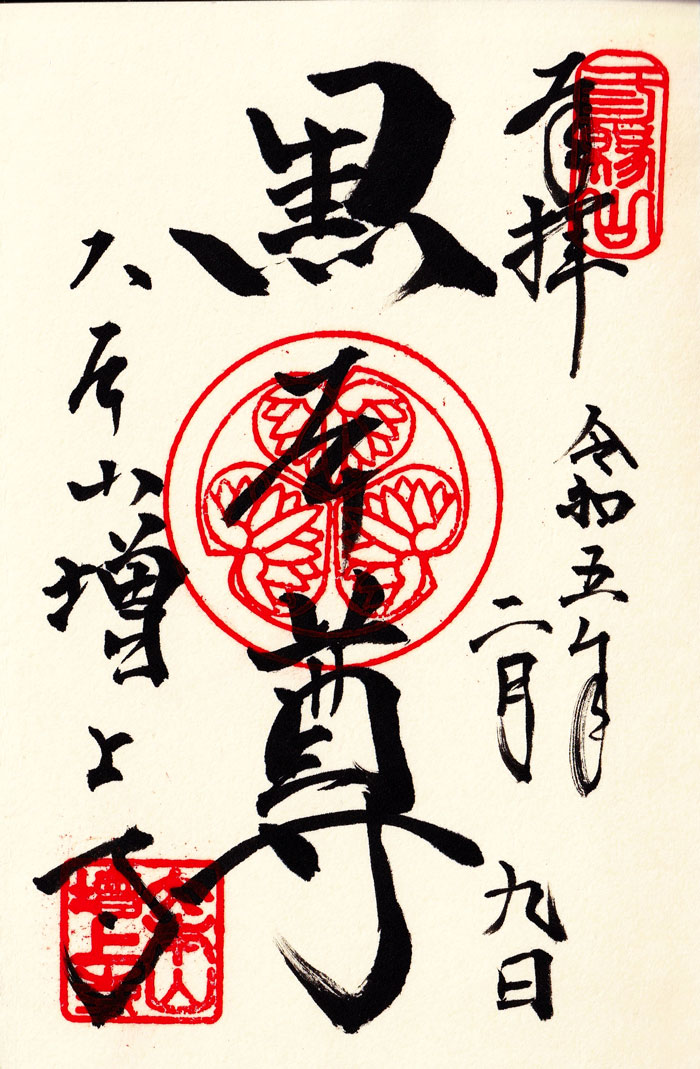 三縁山
奉拝
令和五年
二月
九日
黒本尊
大本山増上寺
大本山
増上寺